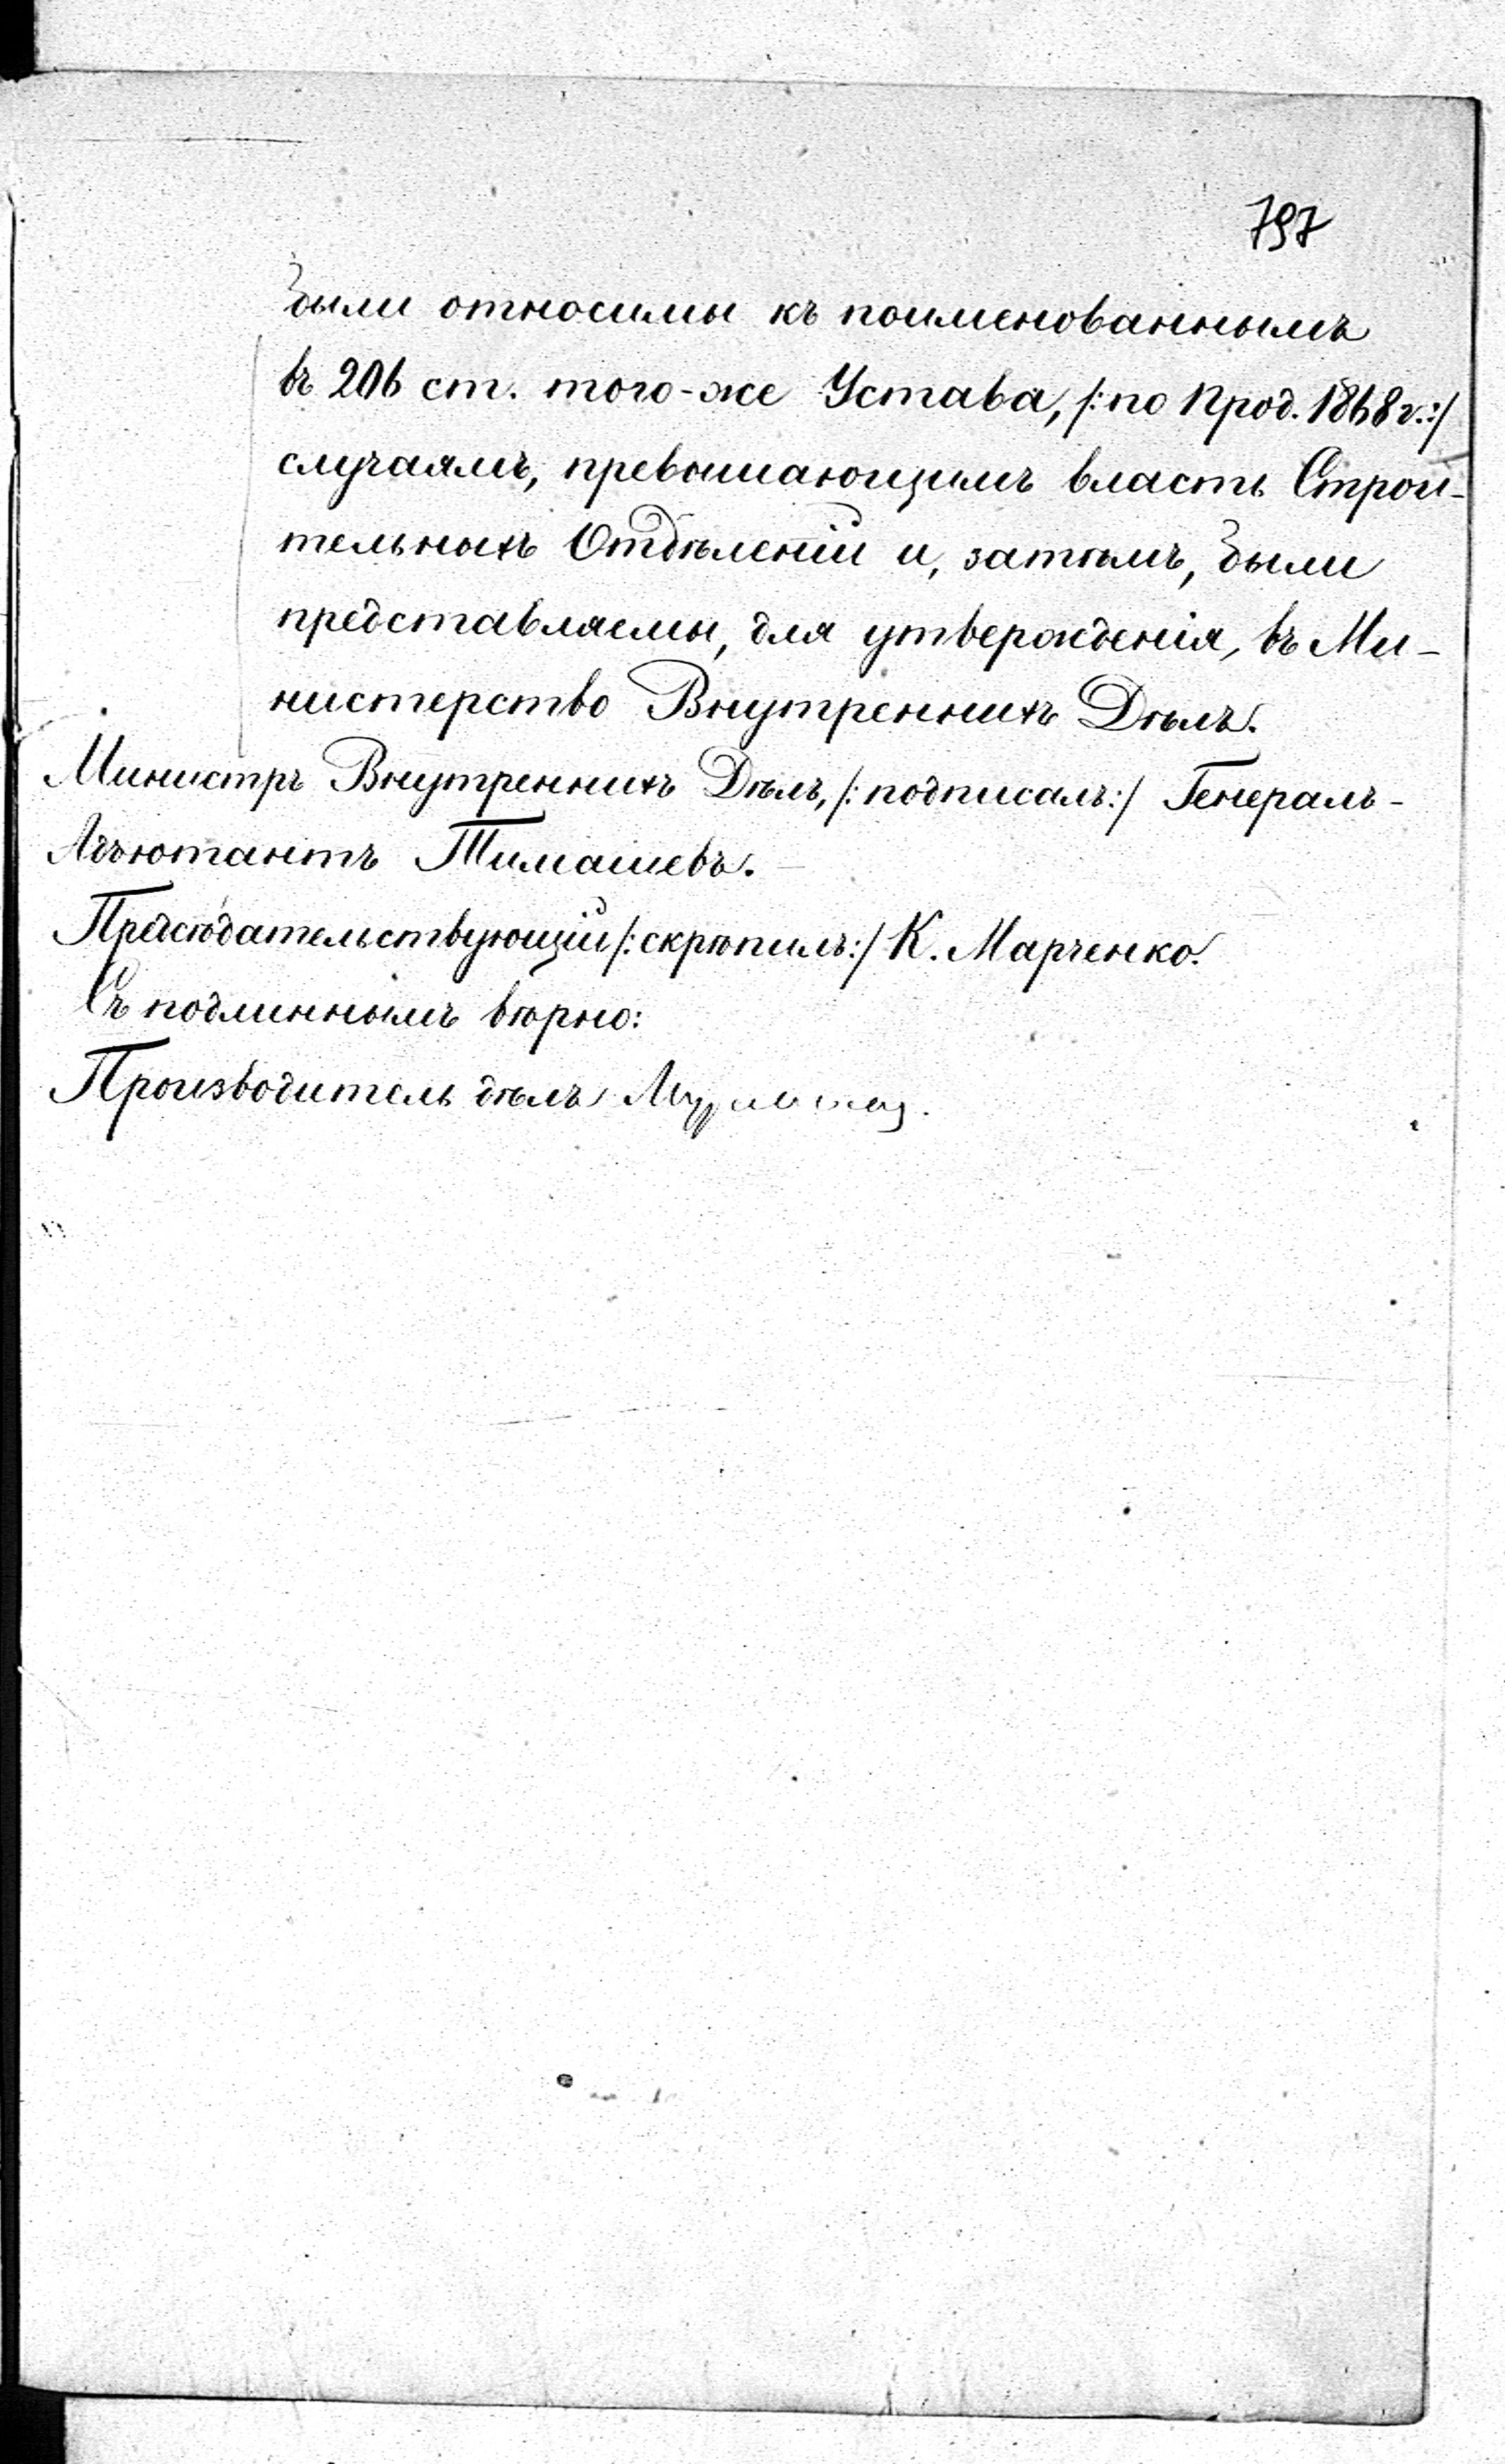 797
были относимы къ поименованнымъ
въ 206 ст. того-же Устава, /:по Прод. 1868 г.:/
случаямъ, превышающимъ власть Строи-
тельныхъ Отдѣленій и, затѣмъ, были
представляемы, для утвержденія, въ Ми-
нистерство Внутреннихъ Дѣлъ.
Министръ Внутреннихъ Дѣлъ, /:подписалъ:/ Генералъ-
Адъютантъ Тимашевъ.
Предсѣдательствующій /:скрѣпилъ:/ К. Марченко.
Съ подлиннымъ вѣрно:
Производитель дѣлъ